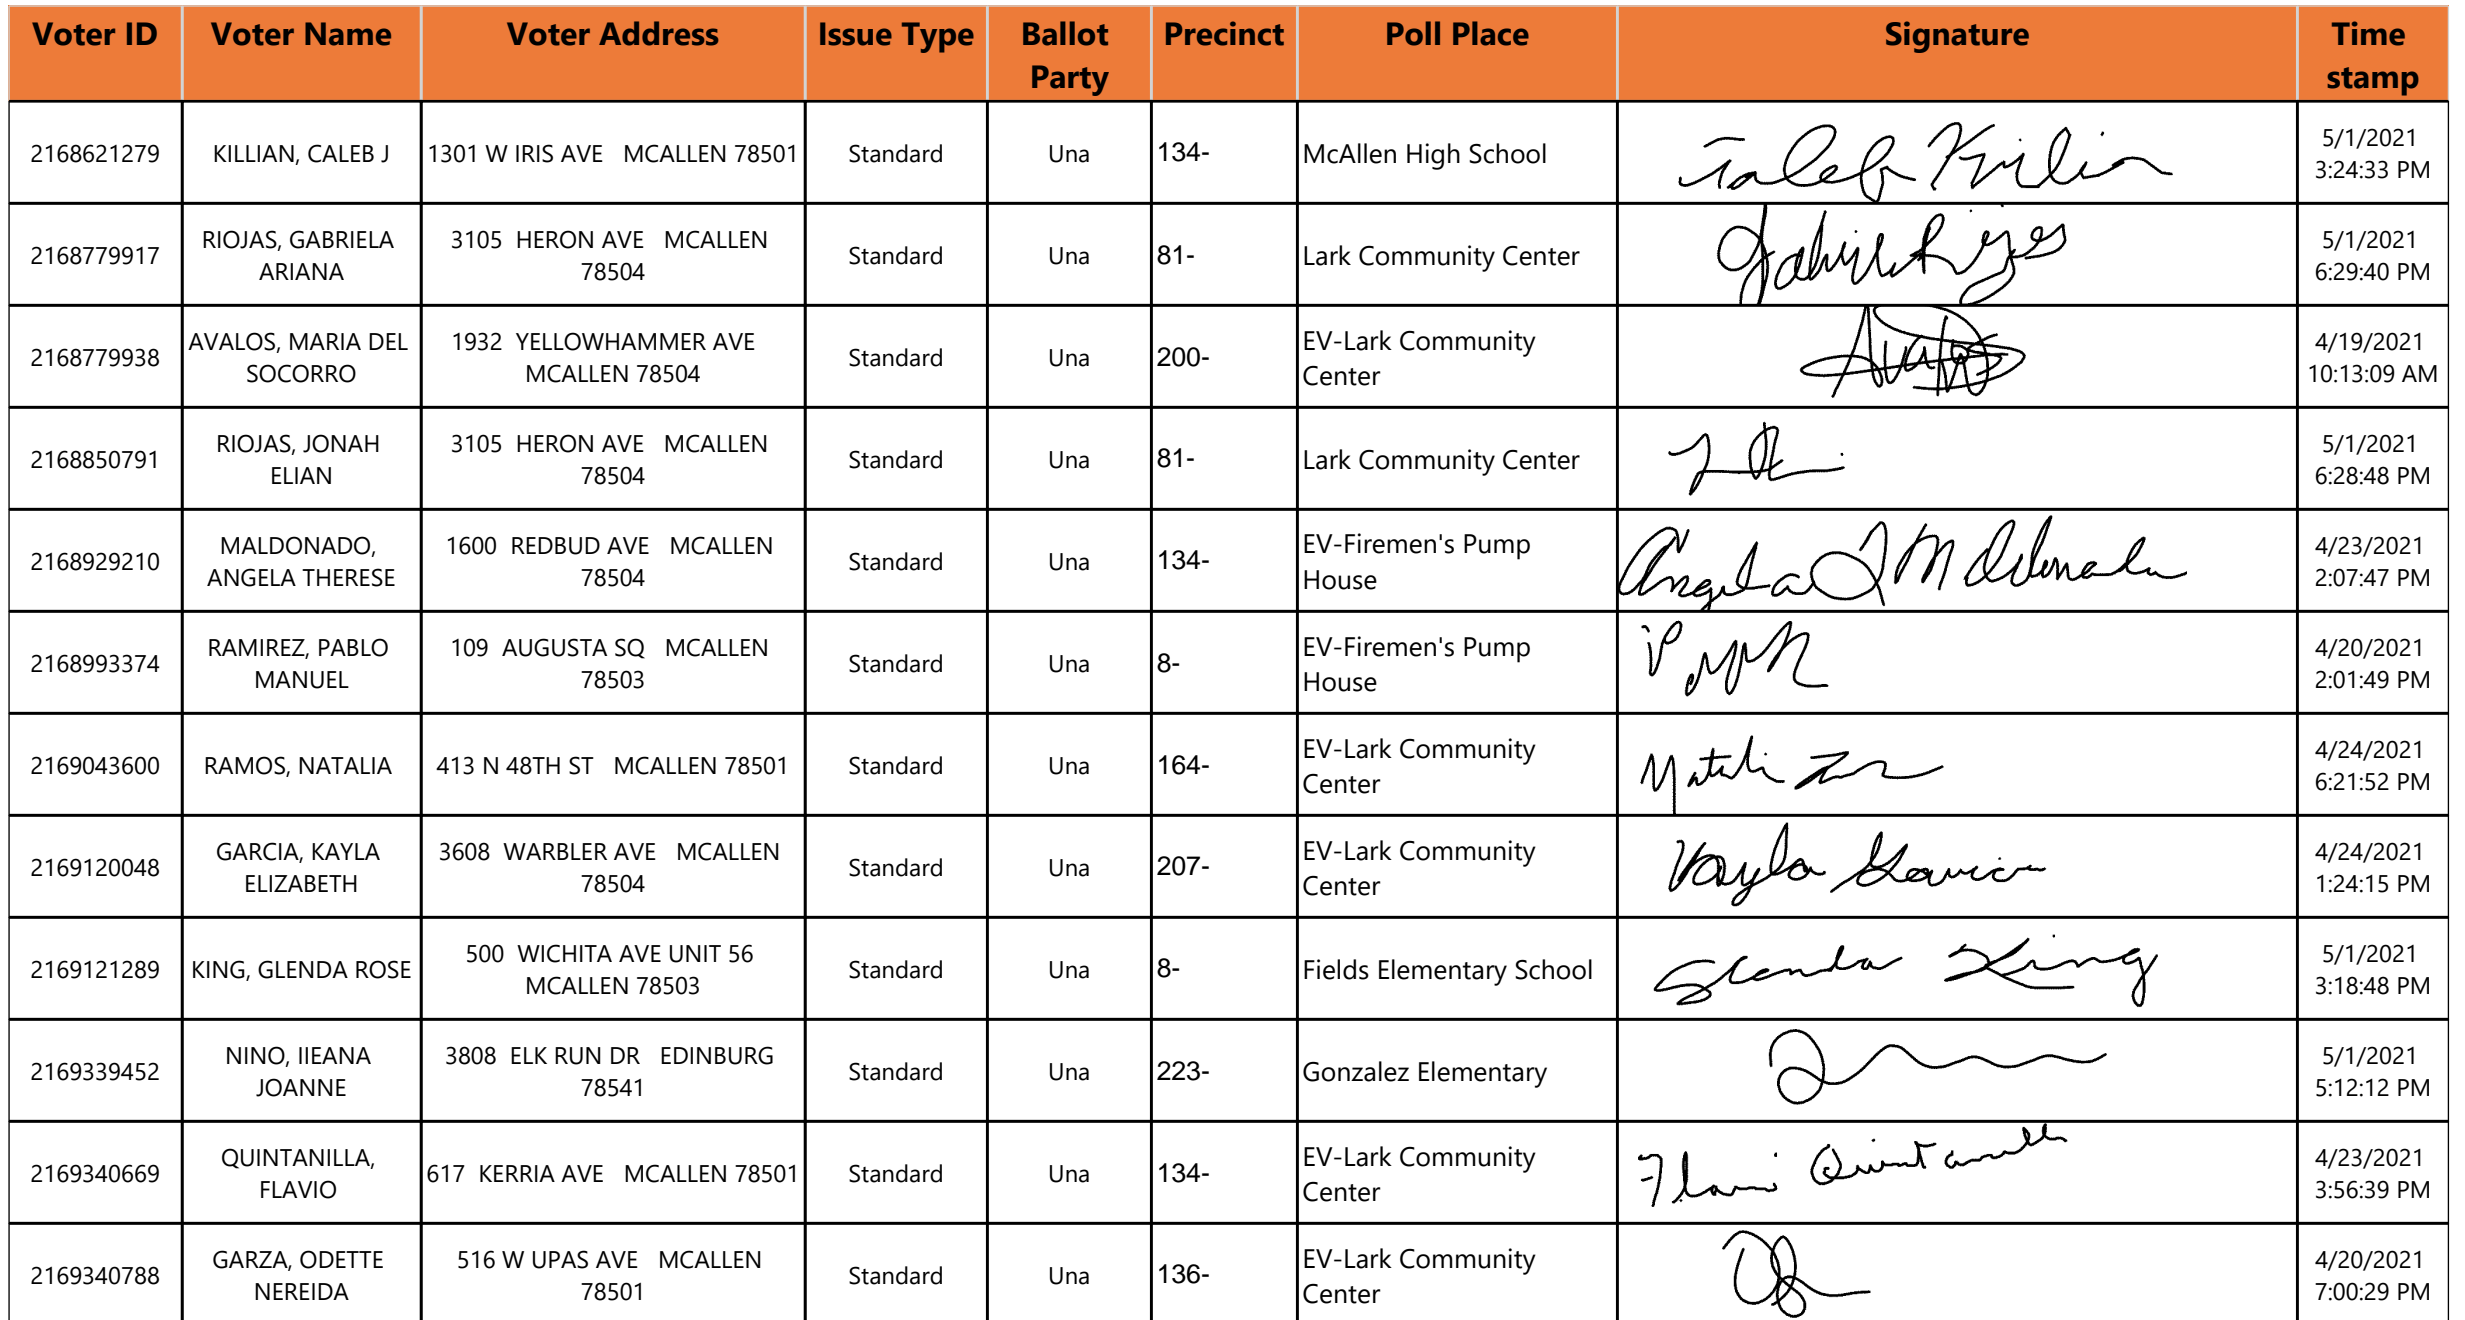 Voter ID Voter Name Voter Address Issue Type Ballot Party Precinct Poll Place Signature Time stamp
2168621279 KILLIAN, CALEB J 1301 W IRIS AVE MCALLEN 78501 Standard Una 134- McAllen High School 5/1/2021 3:24:33 PM
2168779917 RIOJAS, GABRIELA ARIANA 3105 HERON AVE MCALLEN 78504 Standard Una 81- Lark Community Center 5/1/2021 6:29:40 PM
2168779938 AVALOS, MARIA DEL SOCORRO 1932 YELLOWHAMMER AVE MCALLEN 78504 Standard Una 200- EV-Lark Community Center 4/19/2021 10:13:09 AM
2168850791 RIOJAS, JONAH ELIAN 3105 HERON AVE MCALLEN 78504 Standard Una 81- Lark Community Center 5/1/2021 6:28:48 PM
2168929210 MALDONADO, ANGELA THERESE 1600 REDBUD AVE MCALLEN 78504 Standard Una 134- EV-Firemen's Pump House 4/23/2021 2:07:47 PM
2168993374 RAMIREZ, PABLO MANUEL 109 AUGUSTA SQ MCALLEN 78503 Standard Una 8- EV-Firemen's Pump House 4/20/2021 2:01:49 PM
2169043600 RAMOS, NATALIA 413 N 48TH ST MCALLEN 78501 Standard Una 164- EV-Lark Community Center 4/24/2021 6:21:52 PM
2169120048 GARCIA, KAYLA ELIZABETH 3608 WARBLER AVE MCALLEN 78504 Standard Una 207- EV-Lark Community Center Kayla Garcia 4/24/2021 1:24:15 PM
2169121289 KING, GLENDA ROSE 500 WICHITA AVE UNIT 56 MCALLEN 78503 Standard Una 8- Fields Elementary School Glenda King 5/1/2021 3:18:48 PM
2169339452 NINO, IIEANA JOANNE 3808 ELK RUN DR EDINBURG 78541 Standard Una 223- Gonzalez Elementary 5/1/2021 5:12:12 PM
2169340669 QUINTANILLA, FLAVIO 617 KERRIA AVE MCALLEN 78501 Standard Una 134- EV-Lark Community Center 4/23/2021 3:56:39 PM
2169340788 GARZA, ODETTE NEREIDA 516 W UPAS AVE MCALLEN 78501 Standard Una 136- EV-Lark Community Center 4/20/2021 7:00:29 PM